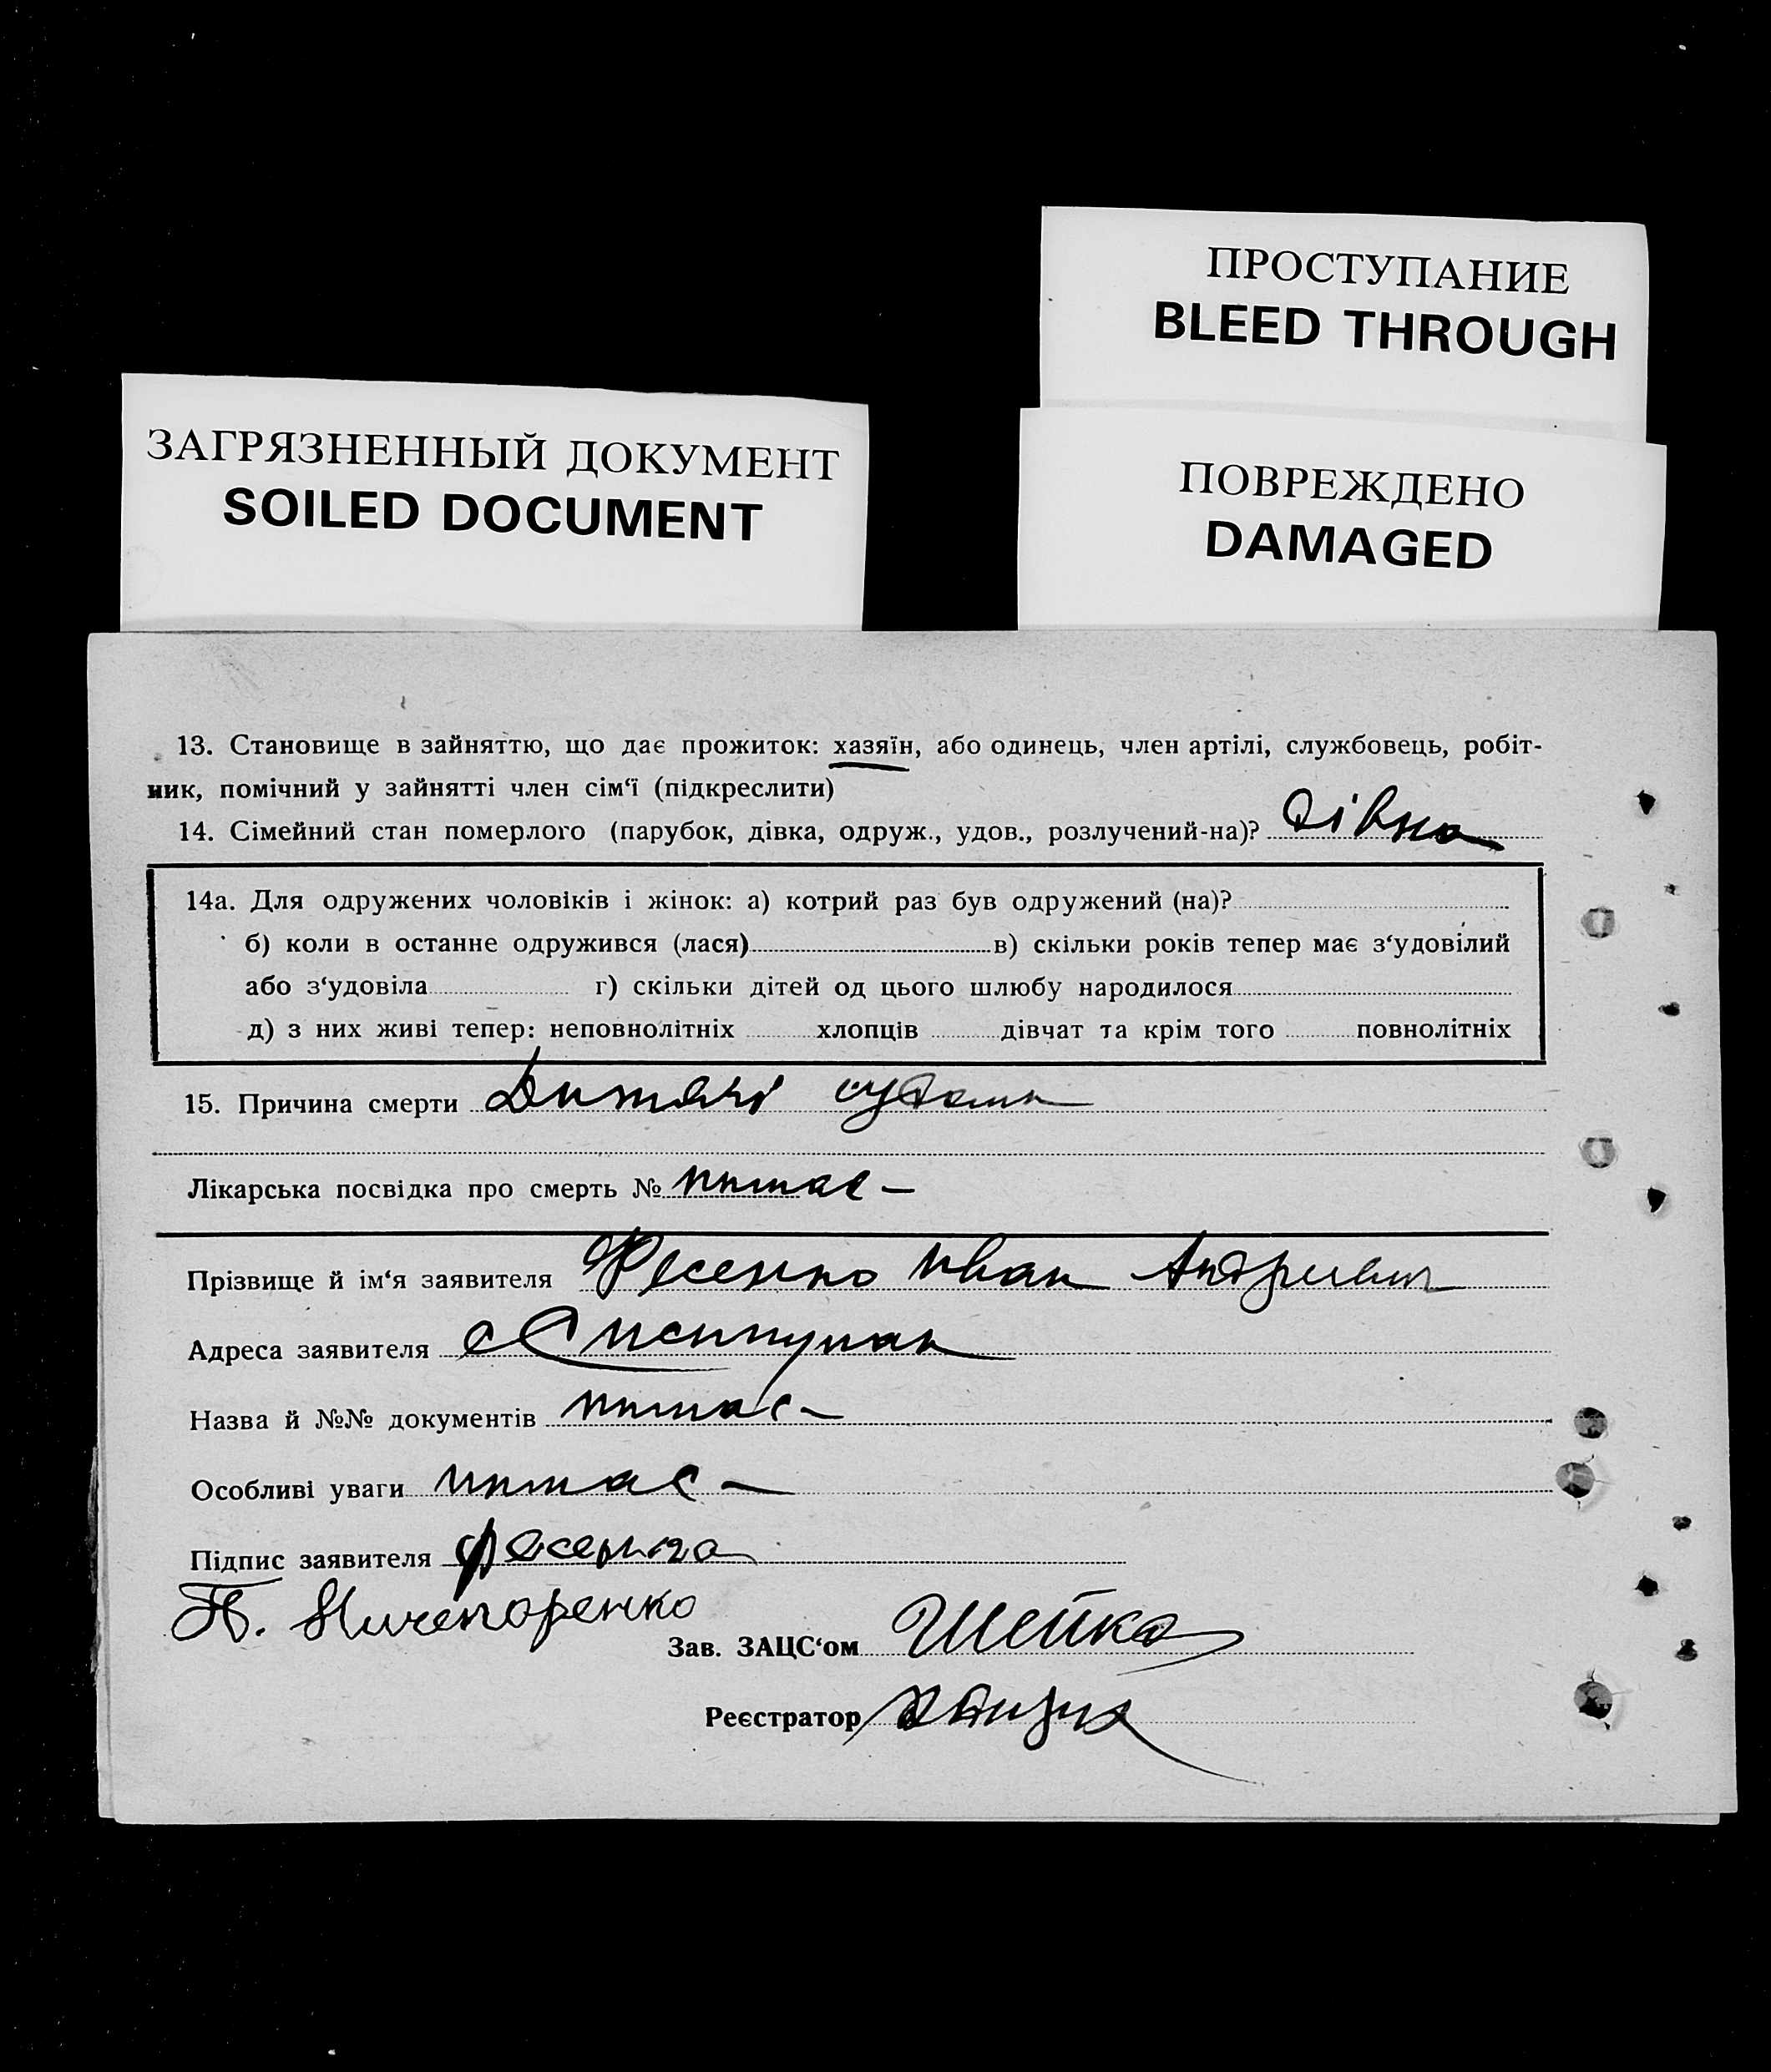 ПРОСТУПАНИЕ
BLEED THROUGH
ЗАГРЯЗНЕННЫЙ ДОКУМЕНТ
SOILED DOCUMENT
ПОВРЕЖДЕНО
DAMAGED
13. Становище в зайняттю, що дає прожиток: хазяїн, або одинець, член артілі, службовець, робіт-
ник, помічний у зайнятті член сім‘ї (підкреслити)
14. Сімейний стан померлого (парубок, дівка, одруж., удов., розлучений-на)? дівка
14а. Для одружених чоловіків і жінок: а) котрий раз був одружений (на)?
б) коли в останне одружився (лася) в) скільки років тепер має з‘удовілий
або з‘удовіла г) скільки дітей од цього шлюбу народилося
д) з них живі тепер: неповнолітніх хлопців дівчат та крім того повнолітніх
15. Причина смерти Дитячі судоми
Лікарська посвідка про смерть № немає —
Прізвище й ім‘я заявителя Фесенко Иван Андреевич
Адреса заявителя
Назва й №№ документів немає —
Особливі уваги немає —
Підпис заявителя Фесенко
П. Ничепоренко
Зав. ЗАЦС‘ом Шейко
Реєстратор